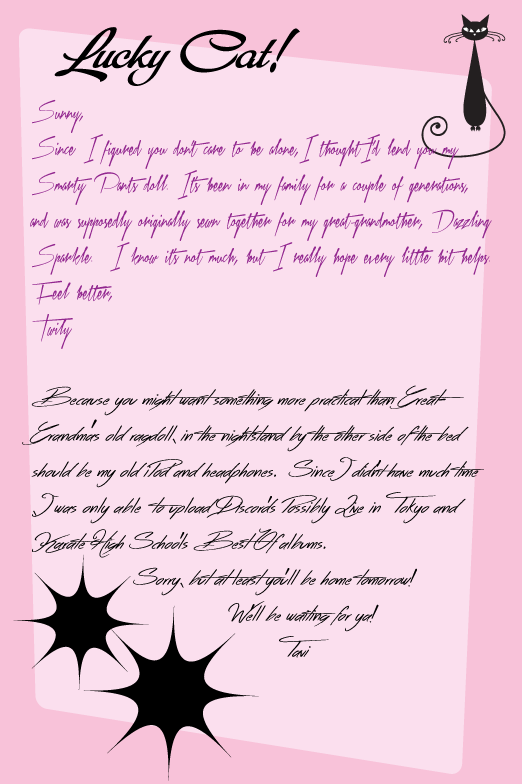 Lucky Cat!
Sunny,
Since I figured you don't care to be alone, I thought I'd lend you my
Smarty Pants doll. It's been in my family for a couple of generations,
and was supposedly originally sewn together for my great-grandmother, Dazzling
Sparkle. I know it's not much, but I really hope every little bit helps.
Feel better,
Twily
Because you might want something more practical than Great-
Grandma's old ragdoll, in the nightstand by the other side of the bed
should be my old iPod and headphones. Since I didn't have much time
I was only able to upload Discord's Possibly Live in Tokyo and
Karate High School's Best Of albums.
Sorry, but at least you'll be home tomorrow!
We'll be waiting for ya!
Tavi